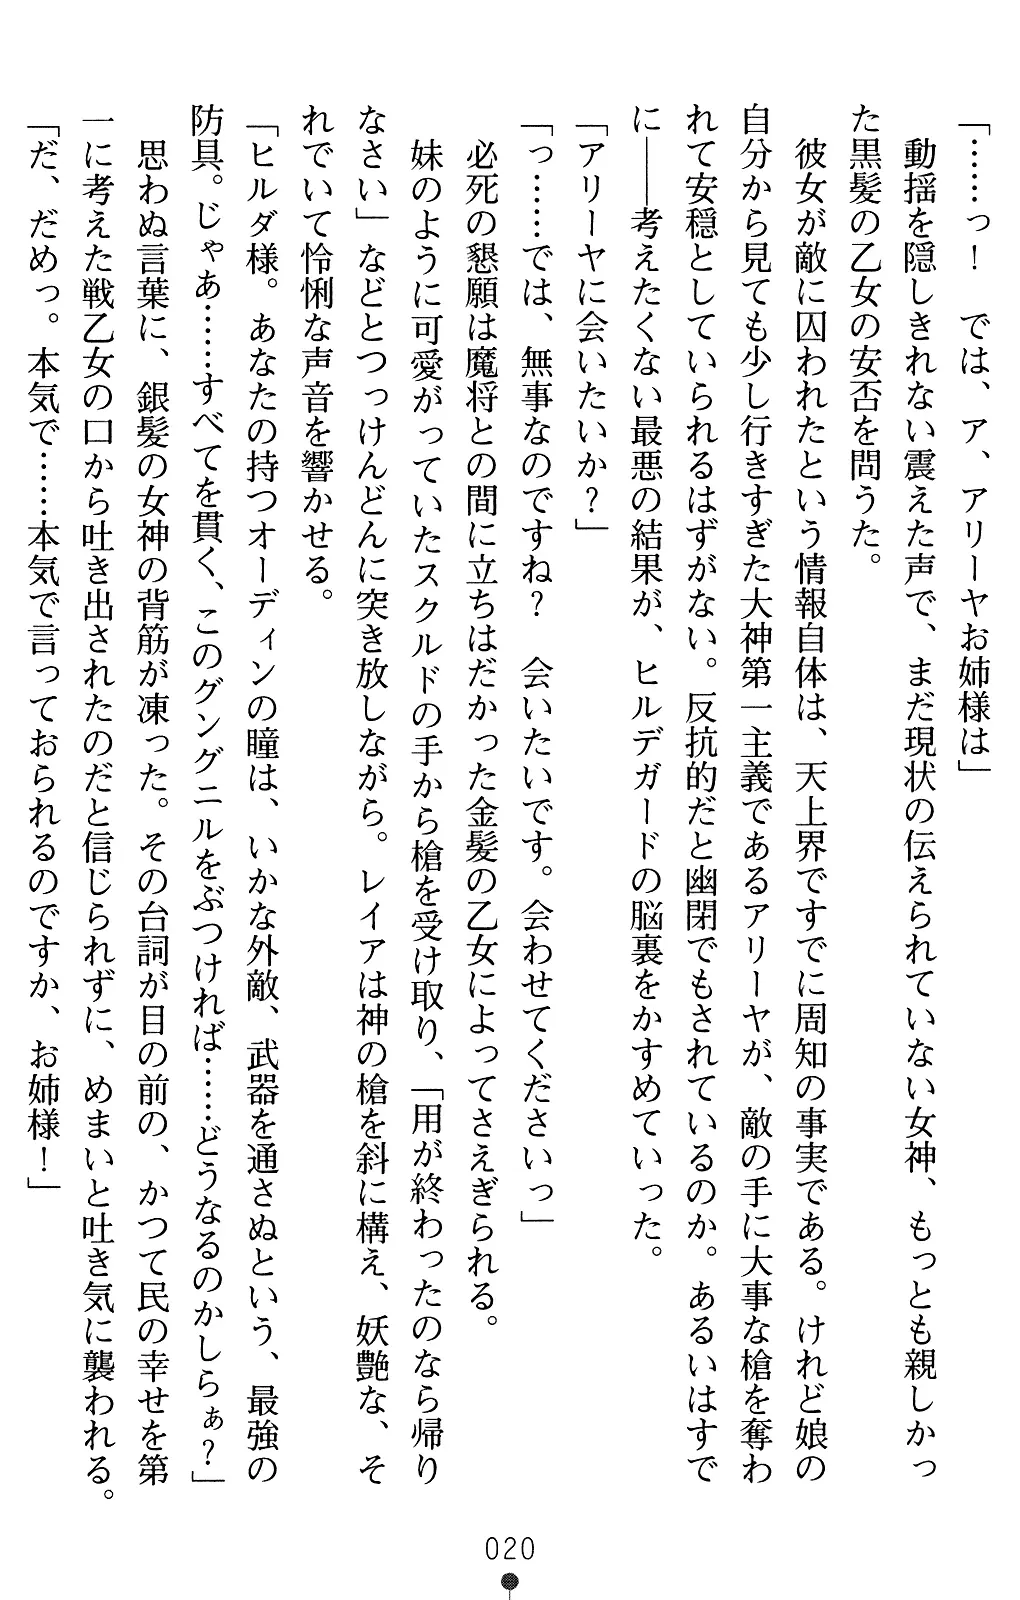 「……っ！　では、ア、アリーヤお姉様は」
　動揺を隠しきれない震えた声で、まだ現状の伝えられていない女神、もっとも親しかっ
た黒髪の乙女の安否を問うた。
　彼女が敵に囚われたという情報自体は、天上界ですでに周知の事実である。けれど娘の
自分から見ても少し行きすぎた大神第一主義であるアリーヤが、敵の手に大事な槍を奪わ
れて安穏としていられるはずがない。反抗的だと幽閉でもされているのか。あるいはすで
に――考えたくない最悪の結果が、ヒルデガードの脳裏をかすめていった。
「アリーヤに会いたいか？」
「っ……では、無事なのですね？　会いたいです。会わせてくださいっ」
　必死の懇願は魔将との間に立ちはだかった金髪の乙女によってさえぎられる。
　妹のように可愛がっていたスクルドの手から槍を受け取り、「用が終わったのなら帰り
なさい」などとつっけんどんに突き放しながら。レイアは神の槍を斜に構え、妖艶な、そ
れでいて怜悧な声音を響かせる。
「ヒルダ様。あなたの持つオーディンの瞳は、いかな外敵、武器を通さぬという、最強の
防具。じゃあ……すべてを貫く、このグングニルをぶつければ……どうなるのかしらぁ？」
　思わぬ言葉に、銀髪の女神の背筋が凍った。その台詞が目の前の、かつて民の幸せを第
一に考えた戦乙女の口から吐き出されたのだと信じられずに、めまいと吐き気に襲われる。
「だ、だめっ。本気で……本気で言っておられるのですか、お姉様！」
020